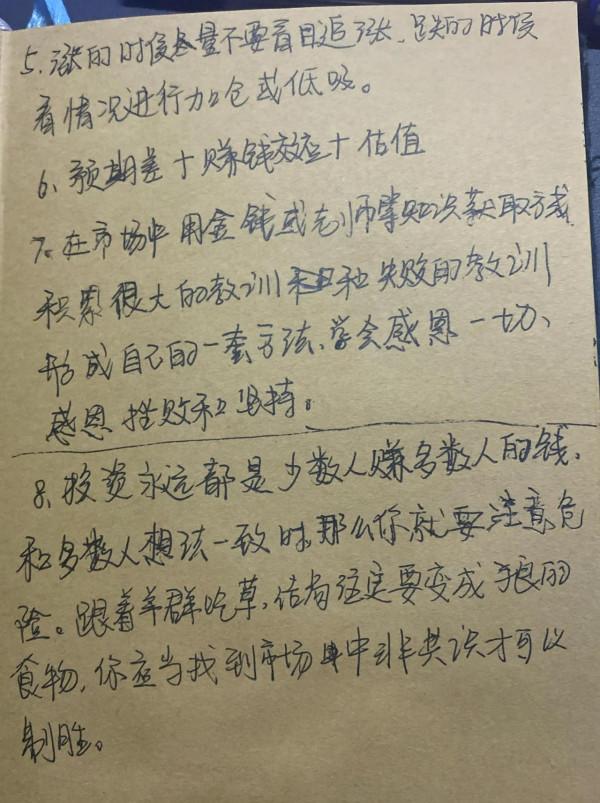 5、涨的时候尽量不要盲目追涨、跌的时候
看情况进行加仓或低吸。
6、预期差+赚钱效应+估值
7、在市场中用金钱或老师掌知识获取方式
积累很大的教训和失败的教训
形成自己的一套方法、学会感恩一切、
感恩挫败和坚持。
8、投资永远都是少数人赚多数人的钱、
和多数人想法一致时那么你就要注意危
险。跟着羊群吃草，结局注定要变成狼的
食物，你应当找到市场中非共识才可以
制胜。